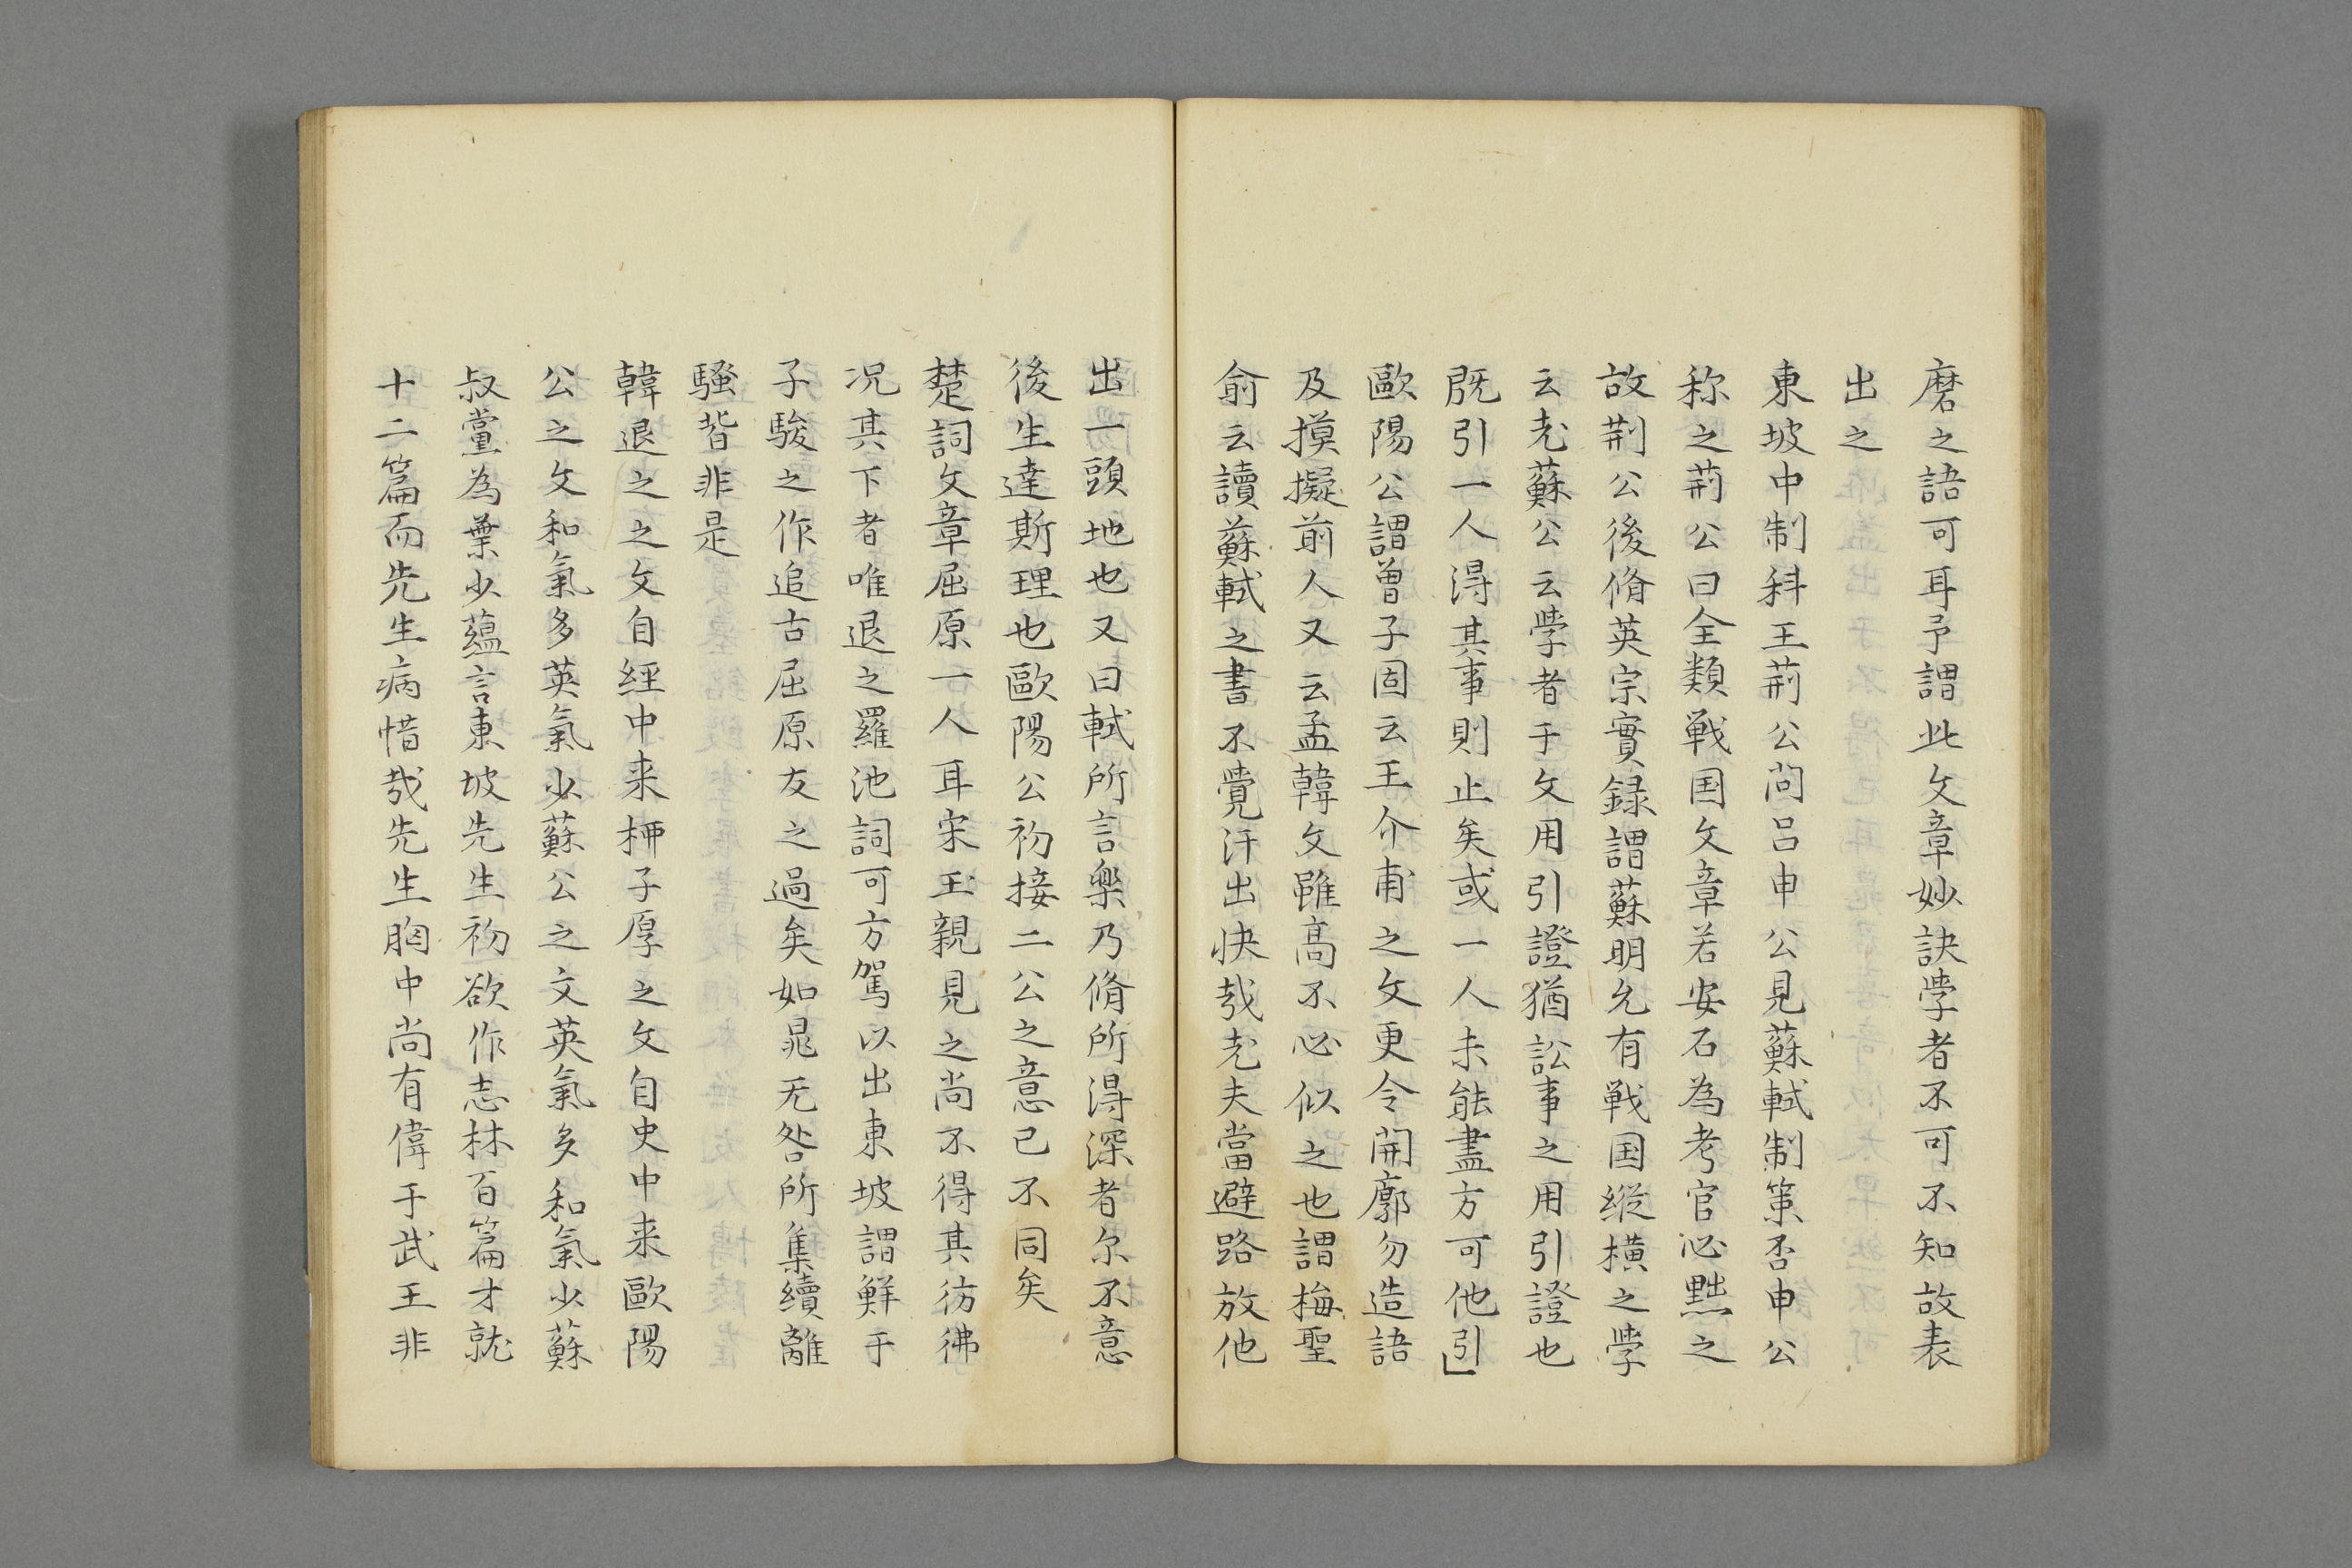 磨之語可耳予謂此文章妙訣學者不可不知故表
出之
東坡中制科王荊公問呂申公見蘇軾制策否申公
称之荊公曰全類戦国文章若安石為考官必黜之
故荊公後脩英宗實録謂蘇明允有戦国縦横之學
云老蘇公云學者于文用引證猶訟事之用引證也
既引一人得其事則止矣或一人未能盡方可他引
歐陽公謂曽子固云王介甫之文更令開廓勿造語
及摸擬前人又云孟韓文雖高不必似之也謂梅聖
俞云讀蘇軾之書不覺汗出快哉老夫當避路放他
出一頭地也又曰軾所言樂乃脩所得深者尓不意
後生達斯理也歐陽公初接二公之意已不同矣
楚詞文章屈原一人耳宋玉親見之尚不得其彷彿
况其下者唯退之羅池詞可方駕以出東坡謂鮮于
子駿之作追古屈原友之過矣如晁无咎所集續離
騷皆非是
韓退之之文自經中来栁子厚之文自史中来歐陽
公之文和氣多英氣少蘇公之文英氣多和氣少蘇
叔黨為葉少蘊言東坡先生初欲作志林百篇才就
十二篇而先生病惜哉先生胸中尚有偉于武王非